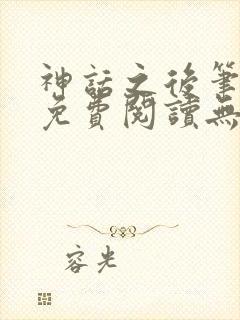 神話之後筆
免費閱讀無
容光